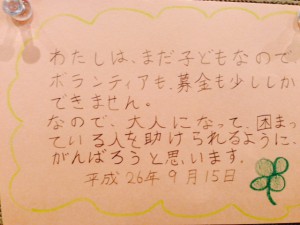 わたしは、まだ子どもなので
ボランティアも、募金も少ししか
できません。
なので、大人になって、困まっ
ている人を助けられるように、
がんばろうと思います.
平成26年9月15日